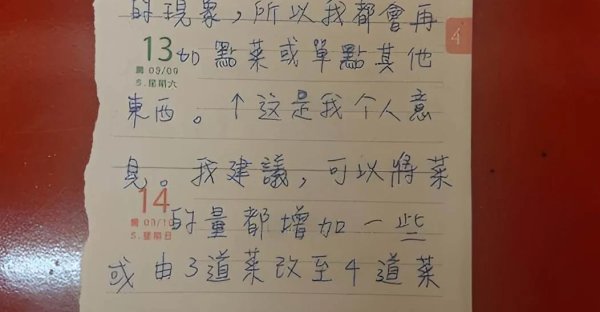 的現象，所以我都會再
4
13
加點菜或單點其他
S.星期六
東西。↑这是我个人意
見。我建議，可以將菜
14
的量都增加一些
S.星期日
或由3道菜改至4道菜